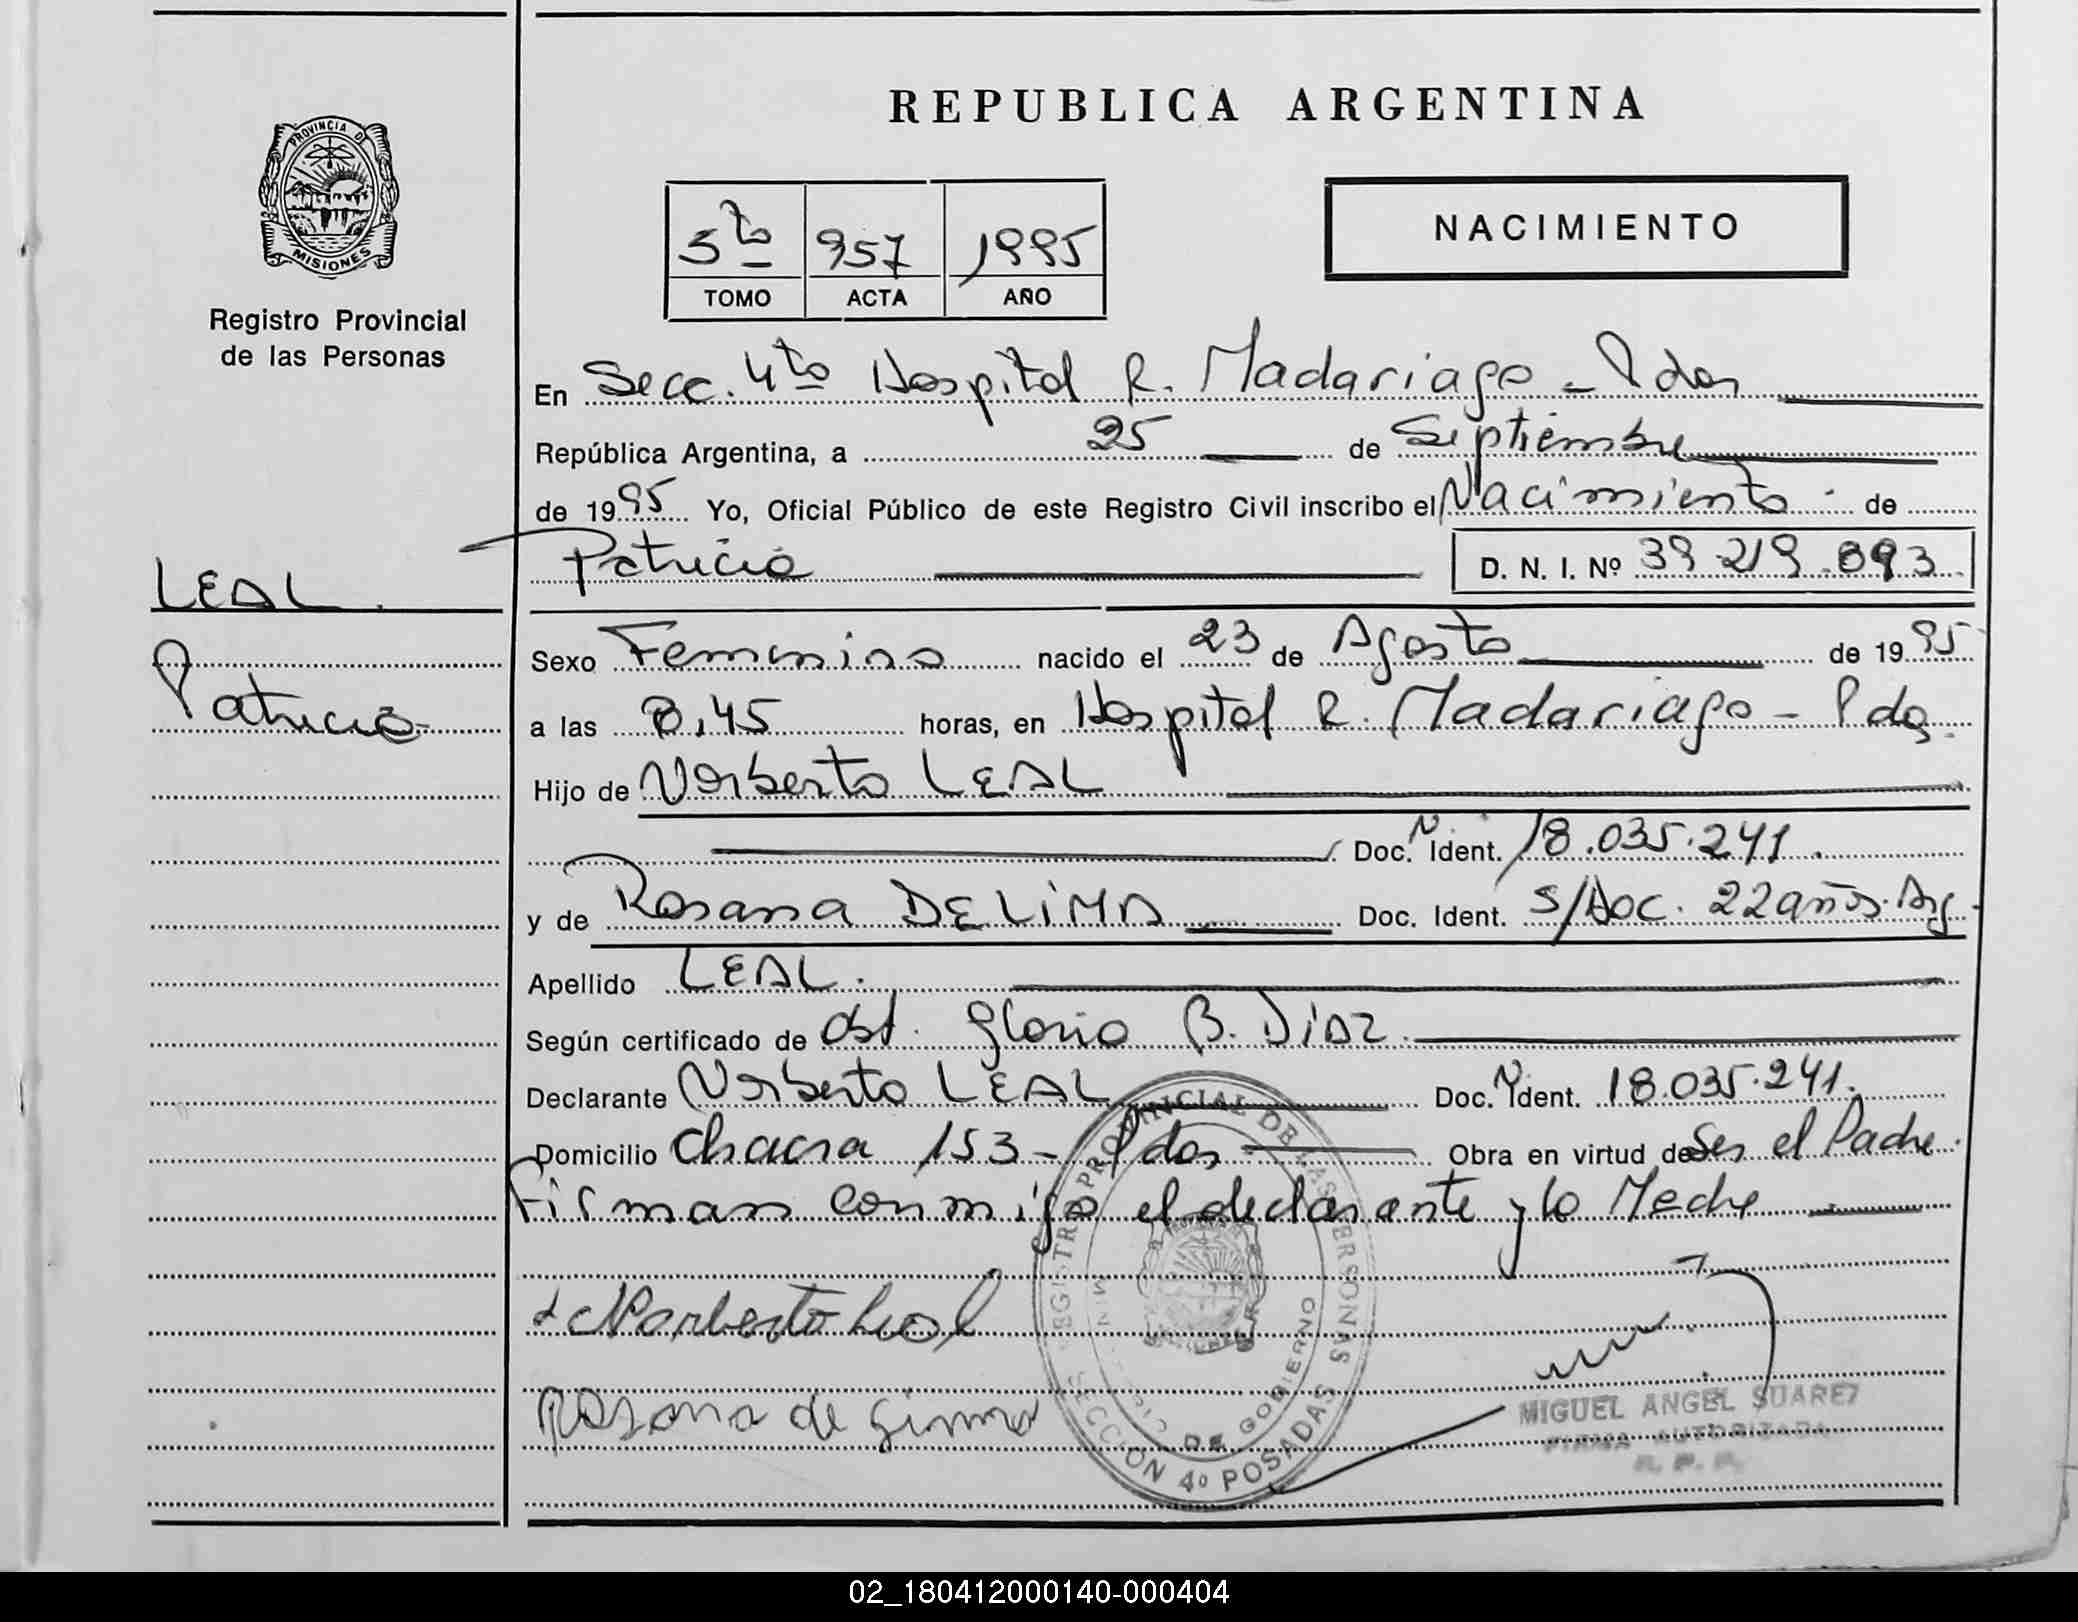 REPUBLICA ARGENTINA
PROVINCIA DE
MISIONES
Registro Provincial
de las Personas
5to 957 1995
TOMO ACTA AÑO
NACIMIENTO
En Secc. 4to Hospital R. Madariaga - Pdas
República Argentina, a 25 de Septiembre
de 1995 Yo, Oficial Público de este Registro Civil inscribo el Nacimiento de
Patricia D. N. I. Nº 39.219.893
LEAL.
Patricia
Sexo Femenino nacido el 23 de Agosto de 1995
a las 8,45 horas, en Hospital R. Madariaga - Pdas.
Hijo de Norberto LEAL
Doc. N Ident. 18.035.241.
y de Rosana DE LiMA Doc. Ident. S/Doc. 22 años. Arg.
Apellido LEAL.
Según certificado de Obst. Gloria B. DiAZ.
Declarante Norberto LEAL Doc. N Ident. 18.035.241.
Domicilio Chacra 153 - Pdas Obra en virtud de Ser el Padre.
Firman conmigo el declarante y la Madre
Norberto Leal
Rosana de
REGISTRO PROVINCIAL DE LAS PERSONAS
MINISTERIO DE GOBIERNO
SECCION 4º POSADAS
MIGUEL ANGEL SUAREZ
FIRMA AUTORIZADA
R. P. P.
02_180412000140-000404